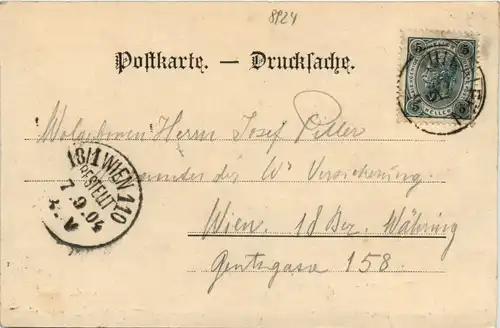 8924
Postkarte. — Drucksache.
5 5
HELLER
Wolgeboren Herrn Josef
18/1 WIEN 110
BESTELLT
7.9.04
V
Beamter des Wr Versicherung.
Wien. 18 Bez. Währing
Gentzgasse 158.